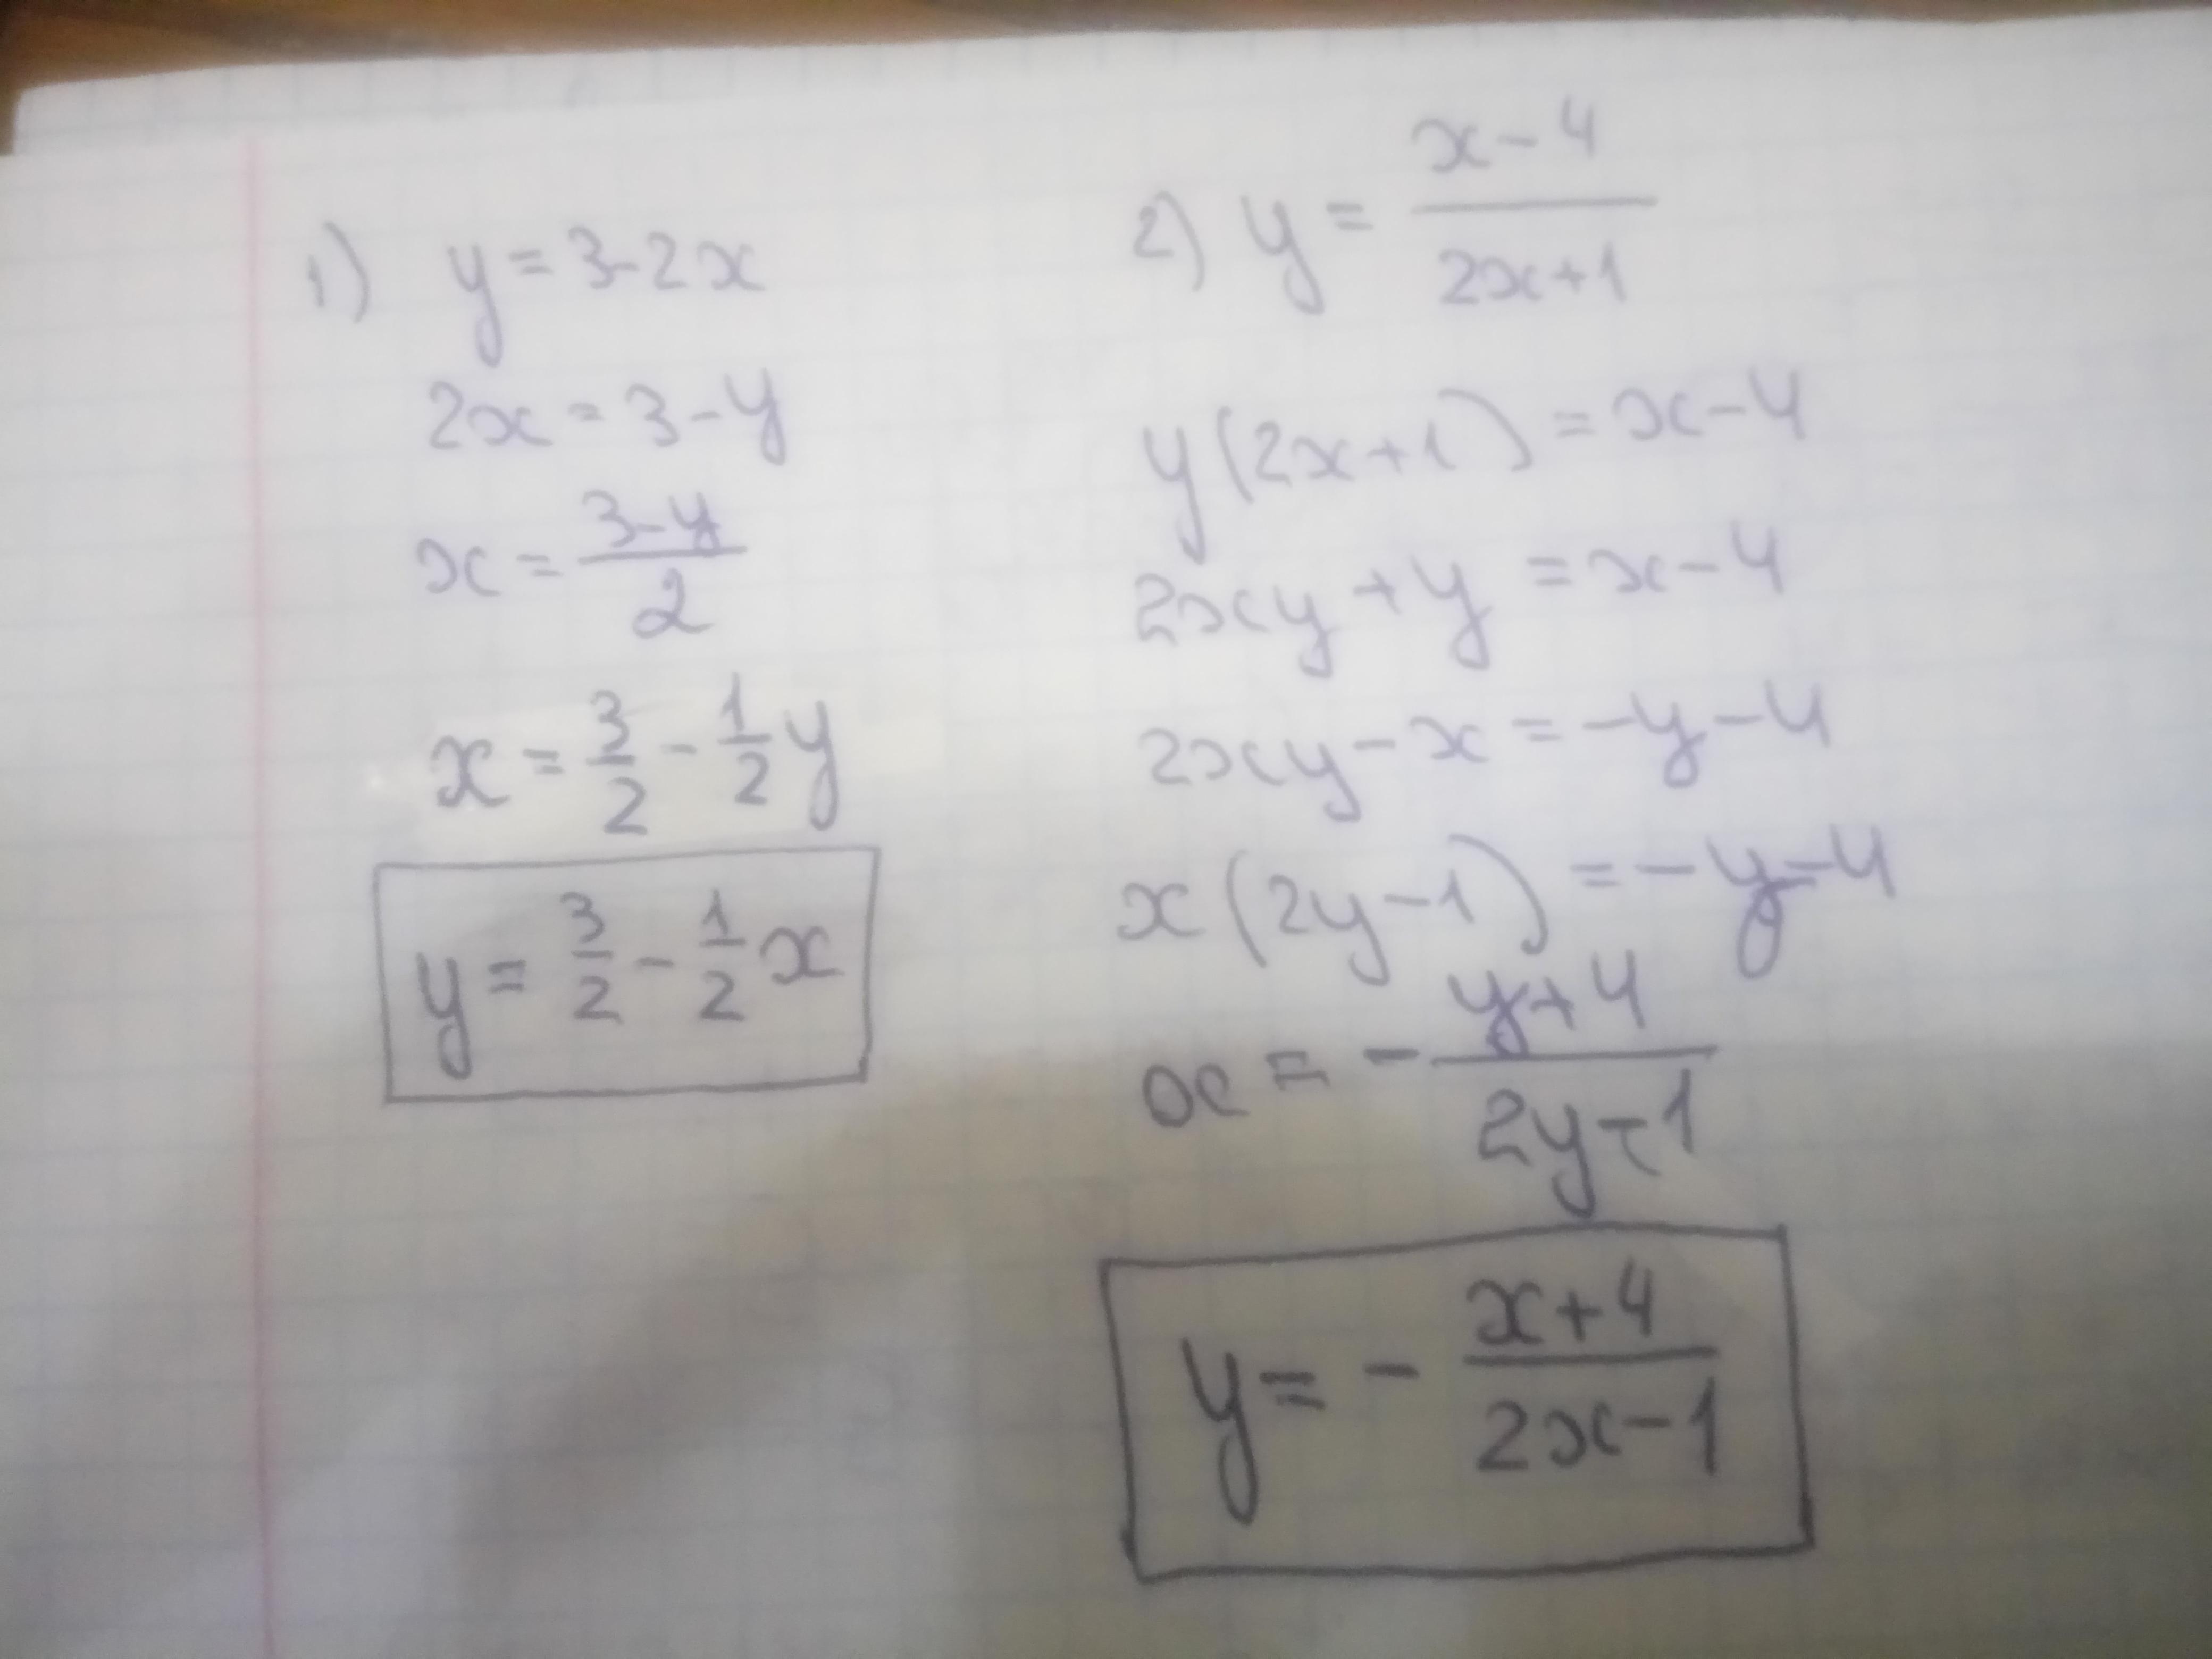 1) y = 3-2x
2x = 3-y
x = \frac{3-y}{2}
x = \frac{3}{2} - \frac{1}{2}y
y = \frac{3}{2} - \frac{1}{2}x
2) y = \frac{x-4}{2x+1}
y(2x+1) = x-4
2xy+y = x-4
2xy-x = -y-4
x(2y-1) = -y-4
x = -\frac{y+4}{2y-1}
y = -\frac{x+4}{2x-1}